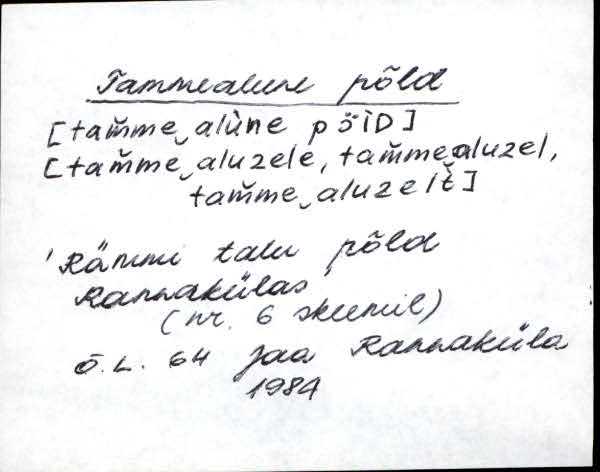 Tammealune põld
[tam̆me‿alùne põlD]
[tam̆me‿aluzele, tam̆mealuzel,
tam̆me‿aluzelt̆]
'Rämmi talu põld
Rannakülas'
(nr. 6 skeemil)
Õ.L. 64 Jaa Rannaküla
1984